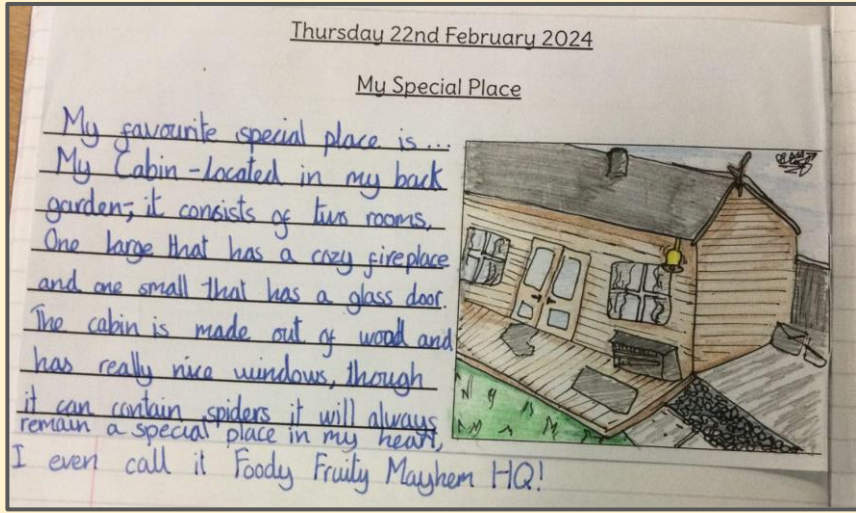 Thursday 22nd February 2024
My Special Place
My favourite special place is...
My Cabin - Located in my back
garden-; it consists of two rooms,
One large that has a cozy fireplace
and one small that has a glass door.
The cabin is made out of wood and
has really nice windows, though
it can contain spiders it will always
remain a special place in my heart,
I even call it Foody Fruity Mayhem HQ!